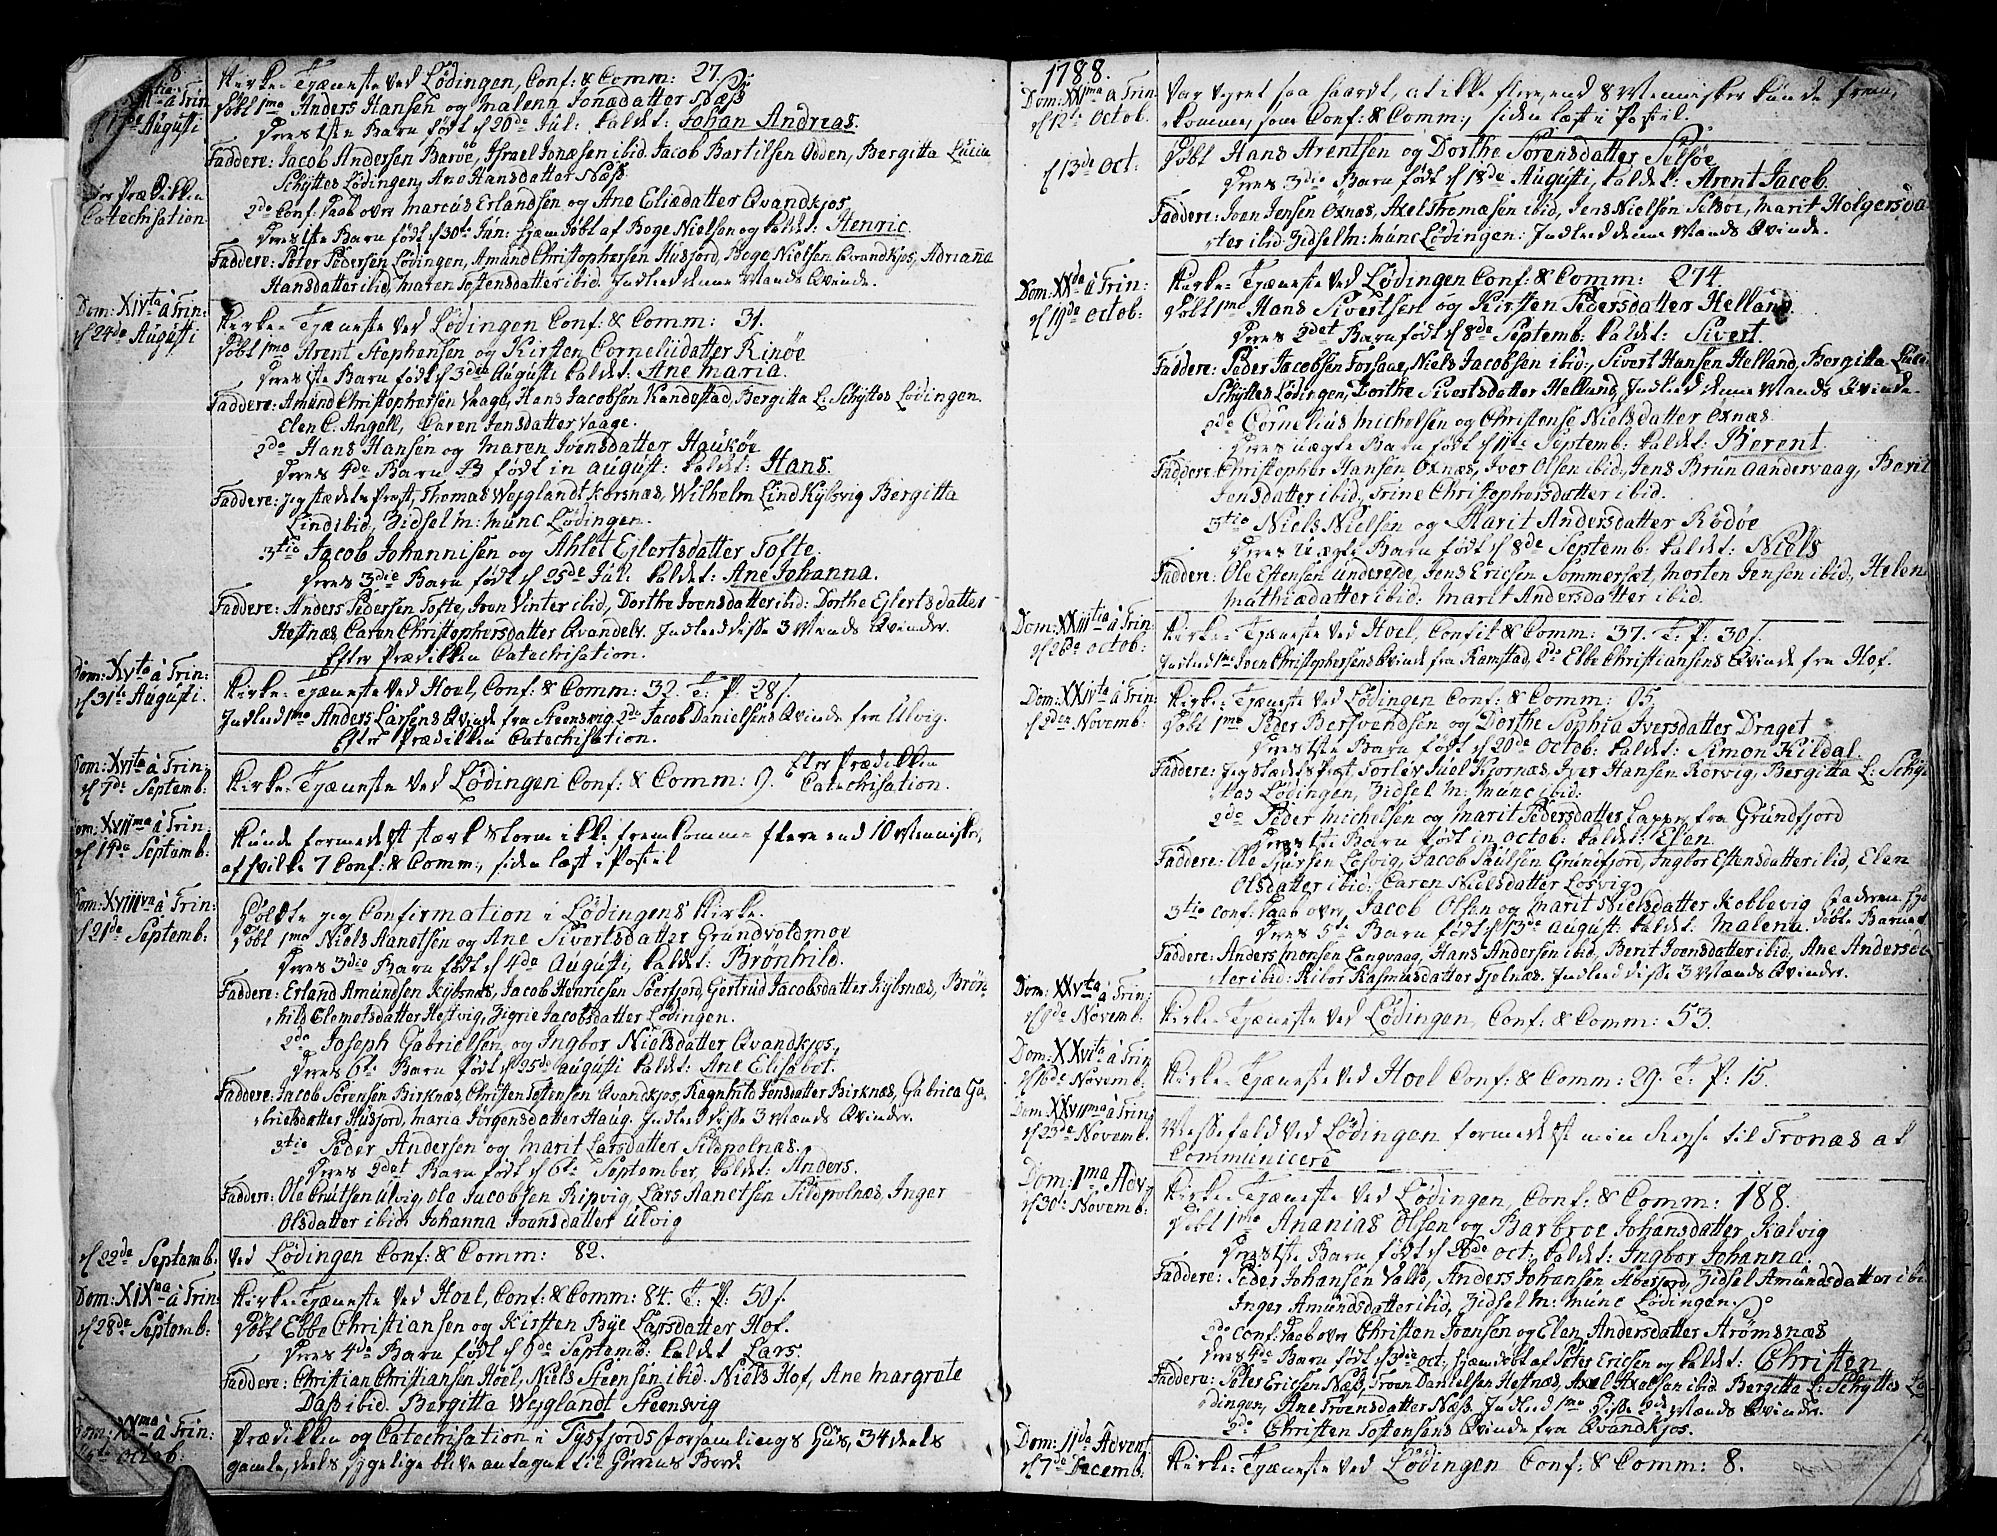 Kirke-Tjæneste ved Lødingen, Conf: & Comm: 27.
Døbt 1mo Anders Hansen og Malenn Jonædatter Næss
Deres 1ste Barn født d 20de Jul: kaldet: Johan Andreas.
Faddere: Jacob Andersen Barøe, Israel Jonæsen ibid. Jacob Bartilsen Odden, Bergitta Lucia
Schyttes Lødingen, Ane Hansdatter Næss.
for Prædiken
Catechisation
2do Conf: Daab over Marcus Erlandsen og Ane Eliædatter Qvandkjos,
Deres 1ste Barn født d 30te Jan: hjemdøbt af Boge Nielsen og kaldet: Henric.
Faddere: Peter Pedersen Lødingen, Amund Christophersen Husjord, Boge Nielsen Qvandkjos, Adriana
Hansdatter ibid, Maren Toftensdatter ibid. Indleed denne Mands Qvinde.
Dom: XIVta à Trin:
d 24de Augusti
Kirke-Tjæneste ved Lødingen Conf: & Comm: 31.
Døbt 1mo Arent Stephensen og Kirsten Corneliidatter Rinøe
Deres 1ste Barn født d 3die Augusti kaldet: Ane Maria.
Faddere: Amund Christophersen Vaage, Hans Jacobsen Kandestad, Bergitta L: Schyttes Lødingen.
Elen C. Angell, Caren Jensdatter Vaage.
2do Hans Hansen og Maren Ivensdatter Haukøe
Deres 4de Barn født in August: kaldet: Hans.
Faddere: jeg stædets Præst, Thomas Wejglandt Korsnæs, Wilhelm Lind Kjbsvig Bergitta
Lind ibid, Zidsel M: Munc Lødingen.
3tio Jacob Johannisen og Ahlet Ejlertsdatter Tofte.
Deres 3die Barn født d 25de Jul: kaldet: Ane Johanna.
Faddere: Anders Pedersen Tofte, Iven Vinter ibid, Dorthe Ivensdatter ibid: Dorthe Ejlertsdatter
Hestnæs Caren Christophersdatter Qvandelv. Indleed disse 3 Mænds Qvinder.
Efter Prædiken Catechisation.
Dom: XVta à Trin:
d 31te Augusti.
Kirke-Tjæneste ved Hoel, Conf: & Comm: 32. T: P: 28 s.
Indleed 1mo Anders Larsens Qvinde fra Steensvig. 2do Jacob Danielsens Qvinde fra Ulvig.
Efter Prædiken Catechisation.
Dom: XVIta à Trin:
d 7de Septemb:
Kirke-Tjæneste ved Lødingen Conf: & Comm: 9. Efter Prædiken
Catechisation.
Dom: XVIIma à Trin:
d 14de Septemb:
Kunde formedelst stærk Storm ikke fremkomme flere end 10 Mennisker,
af hvilke 7 Conf: & Comm:, siden læst i Postil
Dom: XVIIIva à Trin:
d 21de Septemb:
Holdte jeg Confirmation i Lødingens Kirke.
Døbt 1mo Niels Aanetsen og Ane Sivertsdatter Grundvoldmoe
Deres 3die Barn født d 4de Augusti, kaldet: Brønhild.
Faddere: Erland Amundsen Kjbsnæs, Jacob Henricsen Soerfjord, Gertrud Jacobsdatter Kjbsnæs, Brøn-
hild Clemetsdatter Hestvig, Zigrie Jacobsdatter Lødingen.
2do Joseph Gabrielsen og Ingbor Nielsdatter Qvandkjos,
Deres 6te Barn født d 25de Augusti kaldet: Ane Elisabet.
Faddere: Jacob Sørensen Birknæs, Christen Toftensen Qvandkjos, Ragnhild Jensdatter Birknæs, Gabrica Ga-
brielsdatter Husjord, Maria Jørgensdatter Haug. Indleed disse 3 Mænds Qvinder.
3tio Peder Andersen og Marit Larsdatter Sildpolnæs.
Deres 2det Barn født d 6te September, kaldet: Anders.
Faddere: Ole Cnutsen Ulvig, Ole Jacobsen Ripvig, Lars Aanetsen Sildpolnæs, Inger
Olsdatter ibid Johanna Ivensdatter Ulvig
d 22de Septemb:
ved Lødingen Conf: & Comm: 82.
Dom: XIXma à Trin:
d 28de Septemb:
Kirke-Tjæneste ved Hoel, Conf: & Comm: 84. T: P: 50 s.
Døbt Ebbe Christiansen og Kirsten Bye Larsdatter Hof.
Deres 4de Barn født d 9de Septemb: kaldet Lars.
Faddere: Christian Christiansen Hoel, Niels Steensen ibid: Niels Hof, Ane Margrete
Dass ibid. Bergitta Wejglandt Steensvig
Dom: XXma à Trin:
Octob.
Prædiken og Catechisation i Tysfjords Forsamlings Huus, 34 deels
gamle, deels sygelige bleve antagne til Guds Bord.
1788.
Dom: XXIma à Trin:
d 12te Octob.
Var Vejret saa haardt, at ikke flere, end 8 Mennisker kunde frem-
komme, som Conf: & Comm:, siden læst i Postil.
d 13de Oct.
Døbt Hans Arentsen og Dorthe Sørensdatter Selsøe
Deres 3die Barn født d 18de Augusti, kaldet: Arent Jacob.
Faddere: Iven Jensen Oxnæs, Axel Thomæsen ibid, Jens Nielsen Selsøe, Marit Holgersda-
tter ibid Zidsel M: Munc Lødingen: Indleed denne Mands Qvinde.
d 19de Octob:
Kirke-Tjæneste ved Lødingen Conf: & Comm: 274.
Døbt 1mo Hans Sivertsen og Kirsten Pedersdatter Helland
Deres 2det Barn født d 8de Septemb: kaldet: Sivert.
Faddere: Peder Jacobsen Forsaae, Niels Jacobsen ibid:, Sivert Hansen Helland, Bergitta Lucia
Schyttes Lødingen, Dorthe Sivertsdatter Helland, Indleed denne Mands Qvinde.
2do Cornelius Michelsen og Christense Nielsdatter Oxnæs.
Deres uægte Barn født d 11te Septemb: kaldet: Berent
Faddere: Christopher Hansen Oxnæs, Iver Olsen ibid, Jens Brun Aandervaag, Barit
Jensdatter ibid, Trine Christophersdatter ibid.
3tio Niels Nielsen og Marit Andersdatter Rødøe
Deres uægte Barn født d 8de Septemb: kaldet: Niels
Faddere: Ole Estensen Undereide, Jens Ericsen Sommersæt, Morten Jensen ibid, Helen
Mathiædatter ibid: Marit Andersdatter ibid.
Dom: XXIIItia à Trin:
d 26de Octob:
Kirke-Tjæneste ved Hoel, Confit & Comm: 37. T: P: 30 s.
Indleed 1mo Iven Christophersens Qvinde fra Ramstad, 2do Ebbe Christiansens Qvinde fra Hof.
Dom: XXIVta à Trin:
d 2den Novemb:
Kirke-Tjæneste ved Lødingen Conf: & Comm: 95.
Døbt 1mo Peder Bersvendsen og Dorthe Sophia Iversdatter Draget
Deres 1ste Barn født d 20de Octob: kaldet: Simon Kildal.
Faddere: Jeg Stædets Præst, Torlev Juel Kjornæs, Iver Hansen Rørvig, Bergitta L: Schyt-
tes Lødingen, Zidsel M: Munc ibid:
2do Peder Michelsen og Marit Pedersdatter Lapper fra Grundfjord
Deres Barn født in Octob: kaldet: Elen.
Faddere: Ole Sjursen Losvig, Jacob Paulsen Grundfjord, Ingbor Estensdatter ibid, Elen
Olsdatter ibid: Caren Nielsdatter Losvig,
3tio Conf: Daab over, Jacob Olsen og Marit Nielsdatter Kobbevig
Faderen hje
døbte Barnet
Deres 5te Barn født d 13de August: kaldet: Malena.
Faddere: Anders Monsen Langvaag, Hans Andersen ibid, Berit Ivensdatter ibid, Ane Andersda-
tter ibid: Rasmusdatter. Indleed disse 3 Mænds Qvinder.
Dom: XXVta à Trin:
d 9de Novemb:
Kirke-Tjæneste ved Lødingen, Conf: & Comm: 53.
Dom: XXVIta à Trin
d 16de Novemb:
Kirke-Tjæneste ved Hoel Conf: & Comm: 29. T: P: 15.
Dom: XXVIIma à Trin
d 23de Novemb:
Messefald ved Lødingen formedelst min Rejse til Tronæs at
Communicere
Dom: 1ma Adv
d 30te Novemb:
Kirke-Tjæneste ved Lødingen, Conf: & Comm: 188.
Døbt 1mo Ananias Olsen og Barbroe Johansdatter Kalvig
Deres 1ste Barn født d 26de Oct: kaldet: Ingbor Johanna.
Faddere: Peder Johansen Valle, Anders Johansen Aberjord, Zidsel Amundsdatter ibi
Inger Amundsdatter ibid, Zidsel M: Munc Lødingen.
2do Conf: Daab over Christen Ivensen og Elen Andersdatter Strømsnæs
Deres 4de Barn født d 3die Oct: hjemdøbt af Peter Ericsen og kaldet: Christen
Faddere: Peter Ericsen Næss, Troen Danielsen Hestnæs, Axel Axelsen ibid. Bergitta L: Schyttes Lø-
dingen, Ane Troensdatter Næss. Indleed 1mo disse 2de Mænds Qvinder.
2do Christen Toftensens Qvinde fra Qvandkjos.
Dom: IIda Advent
d 7de Decemb:
Kirke-Tjæneste ved Lødingen Conf: & Comm: 8.